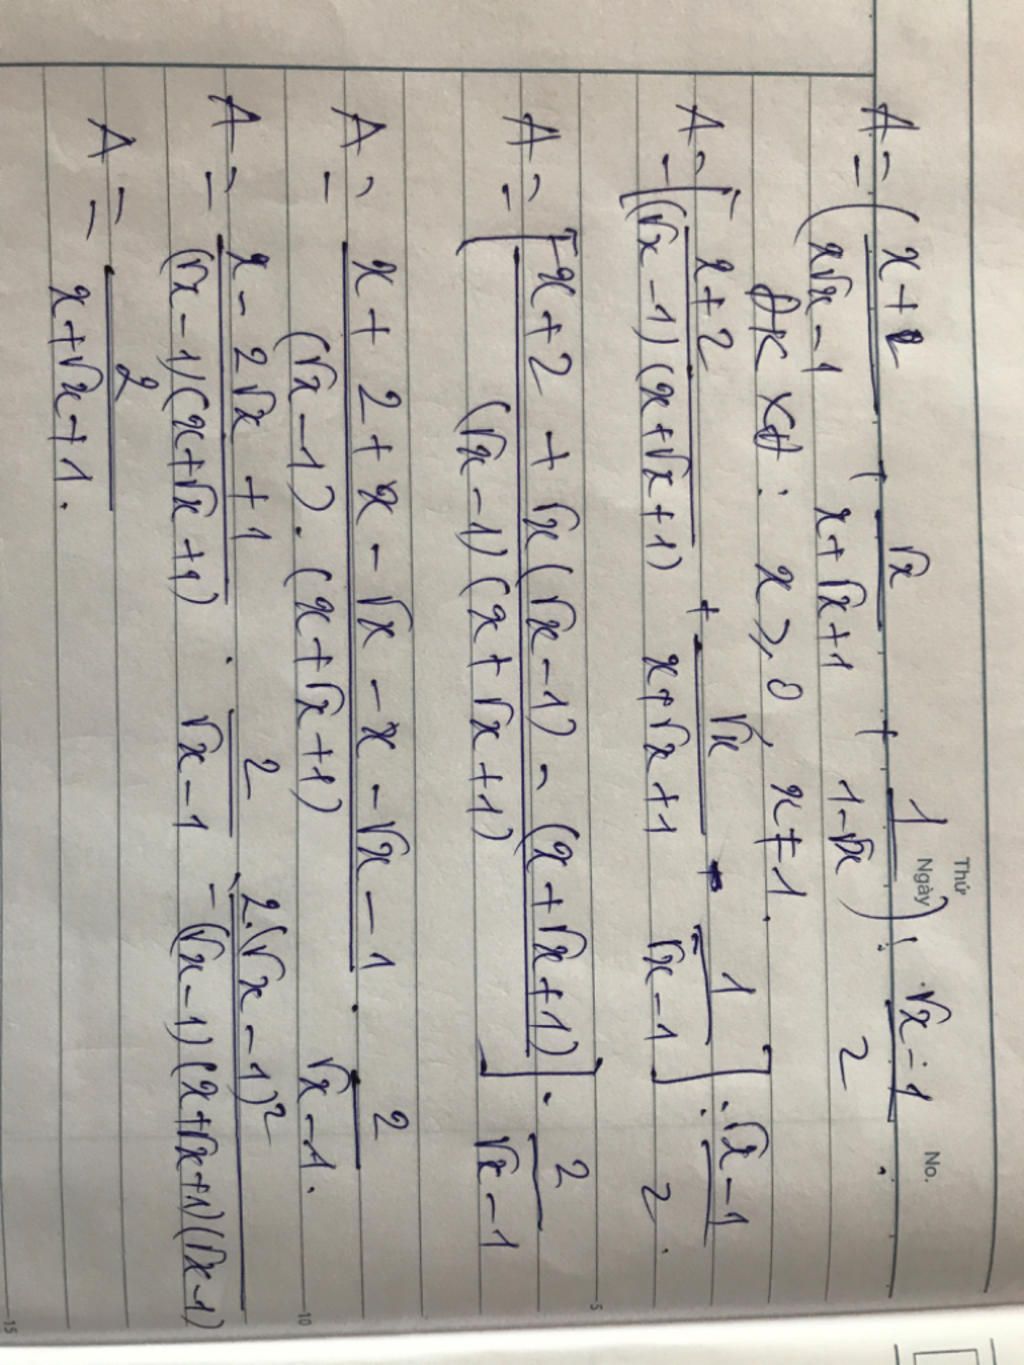 Thứ
Ngày
No.
A = ( x+2 / x√x-1 + √x / x+√x+1 + 1 / 1-√x ) : √x-1 / 2 .
ĐKXĐ: x ⩾ 0, x ≠ 1.
A = [ x+2 / (√x-1)(x+√x+1) + √x / x+√x+1 - 1 / √x-1 ] : √x-1 / 2 .
5
A = [ x+2 + √x(√x-1) - (x+√x+1) / (√x-1)(x+√x+1) ] . 2 / √x-1
A = x+2+x-√x-x-√x-1 / (√x-1).(x+√x+1) . 2 / √x-1 .
10
A = x-2√x+1 / (√x-1)(x+√x+1) . 2 / √x-1 = 2.(√x-1)² / (√x-1)(x+√x+1)(√x-1)
A = 2 / x+√x+1 .
15